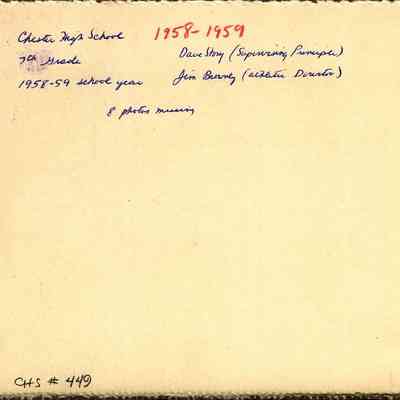 Chester High School 1958-1959
7th Grade Dave Story (Supervising Principle)
1958-59 school year Jim Burney (athletic Director)
8 photos missing
CHS # 449